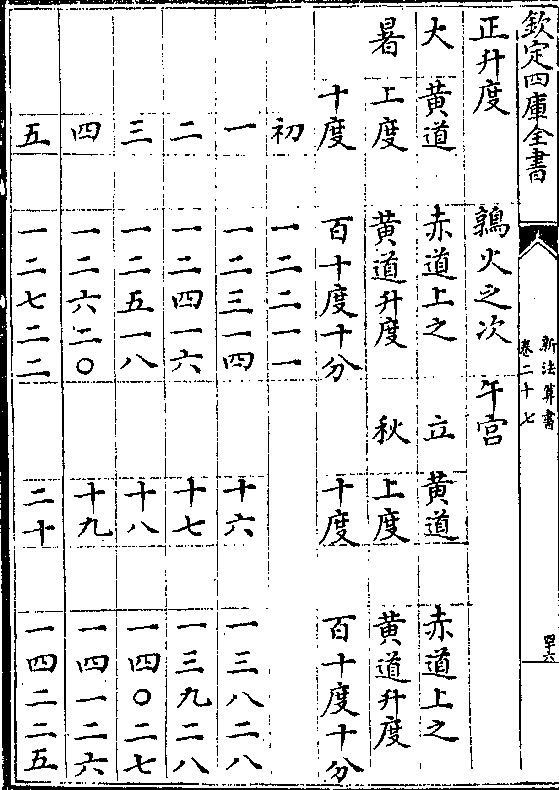 欽定四庫全書
新法算書
卷二十七
四十六
正升度 鶉火之次 午宮
大 黄道 赤道上之 立 黄道 赤道上之
暑 上度 黄道升度 秋 上度 黄道升度
十度 百十度十分 十度 百十度十分
初 一二二一一
一 一二三一四 十六 一三八二八
二 一二四一六 十七 一三九二八
三 一二五一八 十八 一四〇二七
四 一二六二〇 十九 一四一二六
五 一二七二二 二十 一四二二五